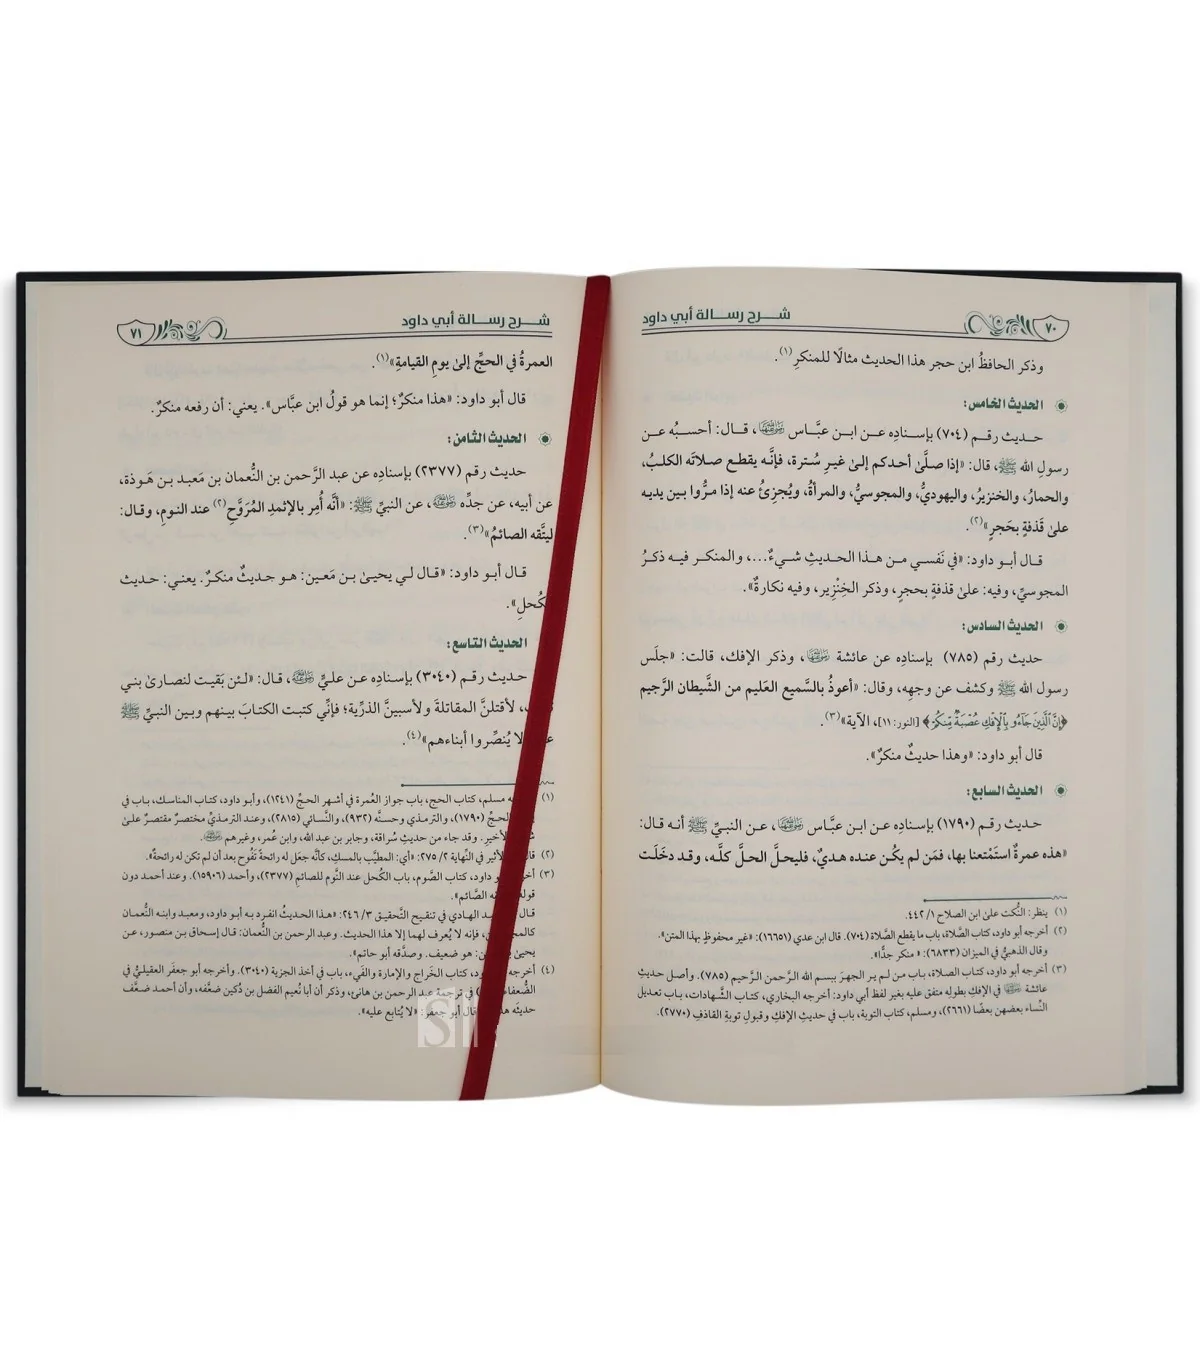 شرح رسالة أبي داود
٧٠
وذكر الحافظُ ابن حجر هذا الحديث مثالًا للمنكرِ(١).
الحديث الخامس:
حديث رقم (٧٠٤) بإسنادِه عن ابن عبَّاس رضي الله عنهما، قال: أحسبُه عن
رسولِ الله ﷺ، قال: «إذا صلَّىٰ أحدكم إلىٰ غيرِ سُترة، فإنَّه يقطع صلاتَه الكلبُ،
والحمارُ، والخنزيرُ، واليهوديُّ، والمجوسيُّ، والمرأةُ، ويُجزِئُ عنه إذا مرُّوا بين يديه
علىٰ قَذفةٍ بحَجرٍ»(٢).
قال أبو داود: «في نَفسي من هذا الحديثِ شيءٌ...، والمنكر فيه ذكرُ
المجوسيِّ، وفيه: علىٰ قذفةٍ بحجرٍ، وذكر الخِنْزِير، وفيه نكارةٌ».
الحديث السادس:
حديث رقم (٧٨٥) بإسنادِه عن عائشة رضي الله عنها، وذكر الإفك، قالت: «جلَس
رسول الله ﷺ وكشف عن وجهِه، وقال: «أعوذُ بالسَّميع العَليم من الشَّيطان الرَّجيم
﴿إِنَّ ٱلَّذِينَ جَآءُو بِٱلْإِفْكِ عُصْبَةٌ مِّنكُمْ﴾ [النور: ١١]، الآية»(٣).
قال أبو داود: «وهذا حديثٌ منكرٌ».
الحديث السابع:
حديث رقم (١٧٩٠) بإسنادِه عن ابن عبَّاس رضي الله عنهما، عن النبيِّ ﷺ أنه قال:
«هذه عمرةٌ استَمْتعنا بها، فمَن لم يكُن عنده هديٌ، فليحلَّ الحلَّ كلَّه، وقد دخَلَت
(١) ينظر: النُّكت علىٰ ابن الصلاح ١/ ٤٤٢.
(٢) أخرجه أبو داود، كتاب الصَّلاة، باب ما يقطع الصَّلاة (٧٠٤). قال ابن عدي (١٦٦٥١): «غير محفوظٍ بهذا المتن».
وقال الذهبيُّ في الميزان (٦٨٣٣): «منكر جدًّا».
(٣) أخرجه أبو داود، كتاب الصلاة، باب من لم ير الجهرَ ببسم الله الرَّحمن الرَّحيم (٧٨٥). وأصل حديثِ
عائشة رضي الله عنها في الإفكِ بطولِه متفق عليه بغير لفظ أبي داود: أخرجه البخاري، كتاب الشَّهادات، باب تعديل
النِّساء بعضهن بعضًا (٢٦٦١)، ومسلم، كتاب التوبة، باب في حديثِ الإفكِ وقبولِ توبةِ القاذفِ (٢٧٧٠).
شرح رسالة أبي داود
٧١
العمرةُ في الحجِّ إلىٰ يومِ القيامةِ»(١).
قال أبو داود: «هذا منكرٌ؛ إنما هو قولُ ابن عبَّاس». يعني: أن رفعه منكرٌ.
الحديث الثامن:
حديث رقم (٢٣٧٧) بإسنادِه عن عبد الرَّحمن بن النُّعمان بن مَعبد بن هَوذة،
عن أبيه، عن جدِّه رضي الله عنه، عن النبيِّ ﷺ: «أنَّه أُمِر بالإثمدِ المُرَوَّحِ(٢) عند النومِ، وقال:
ليتَّقه الصائمُ»(٣).
قال أبو داود: «قال لي يحيىٰ بن مَعين: هو حديثٌ منكرٌ. يعني: حديث
الكُحلِ».
الحديث التاسع:
حديث رقم (٣٠٤٠) بإسنادِه عن عليٍّ رضي الله عنه، قال: «لئن بَقيت لنصارىٰ بني
، لأقتلنَّ المقاتلةَ ولأسبينَّ الذرِّية؛ فإنِّي كتبت الكتابَ بينهم وبين النبيِّ ﷺ
لا يُنصِّروا أبناءهم»(٤).
(١) مسلم، كتاب الحج، باب جواز العُمرة في أشهر الحجِّ (١٢٤١)، وأبو داود، كتاب المناسك، باب في
الحجِّ (١٧٩٠)، والترمذي وحسنَّه (٩٣٢)، والنَّسائي (٢٨١٥)، وعند الترمذيِّ مختصرٌ مقتصرٌ علىٰ
الأخيرِ. وقد جاء من حديثِ سُراقة، وجابر بن عبد الله، وابن عُمر، وغيرهم رضي الله عنهم.
(٢) الأثير في النِّهاية ٢/ ٢٧٥: «أي: المطيَّب بالمسكِ، كأنَّه جعَل له رائحةً تَفُوح بعد أن لم تكن له رائحةٌ».
(٣) داود، كتاب الصَّوم، باب الكُحل عند النَّوم للصائم (٢٣٧٧)، وأحمد (١٥٩٠٦). وعند أحمد دون
الصَّائم».
عبد الهادي في تنقيح التَّحقيق ٣/ ٢٤٦: «هذا الحديثُ انفرد به أبو داود، ومعبد وابنه النُّعمان
فإنه لا يُعرف لهما إلا هذا الحديث. وعبد الرحمن بن النُّعمان: قال إسحاق بن منصور، عن
يحيىٰ: هو ضعيف. وصدَّقه أبو حاتم».
(٤) داود، كتاب الخَراج والإمارة والفَيء، باب في أخذ الجزية (٣٠٤٠). وأخرجه أبو جعفَر العقيليُّ في
الضُّعفاء في ترجمة عبد الرحمن بن هانئ، وذكر أن أبا نُعيم الفضل بن دُكين ضعَّفه، وأن أحمد ضعَّف
حديثه قال أبو جعفر: «لا يُتابع عليه».